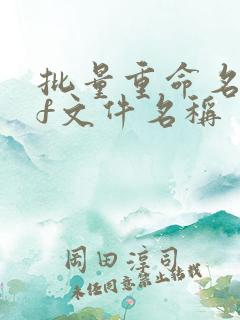 批量重命名
f文件名稱
岡田淳司
未经同意禁止转载